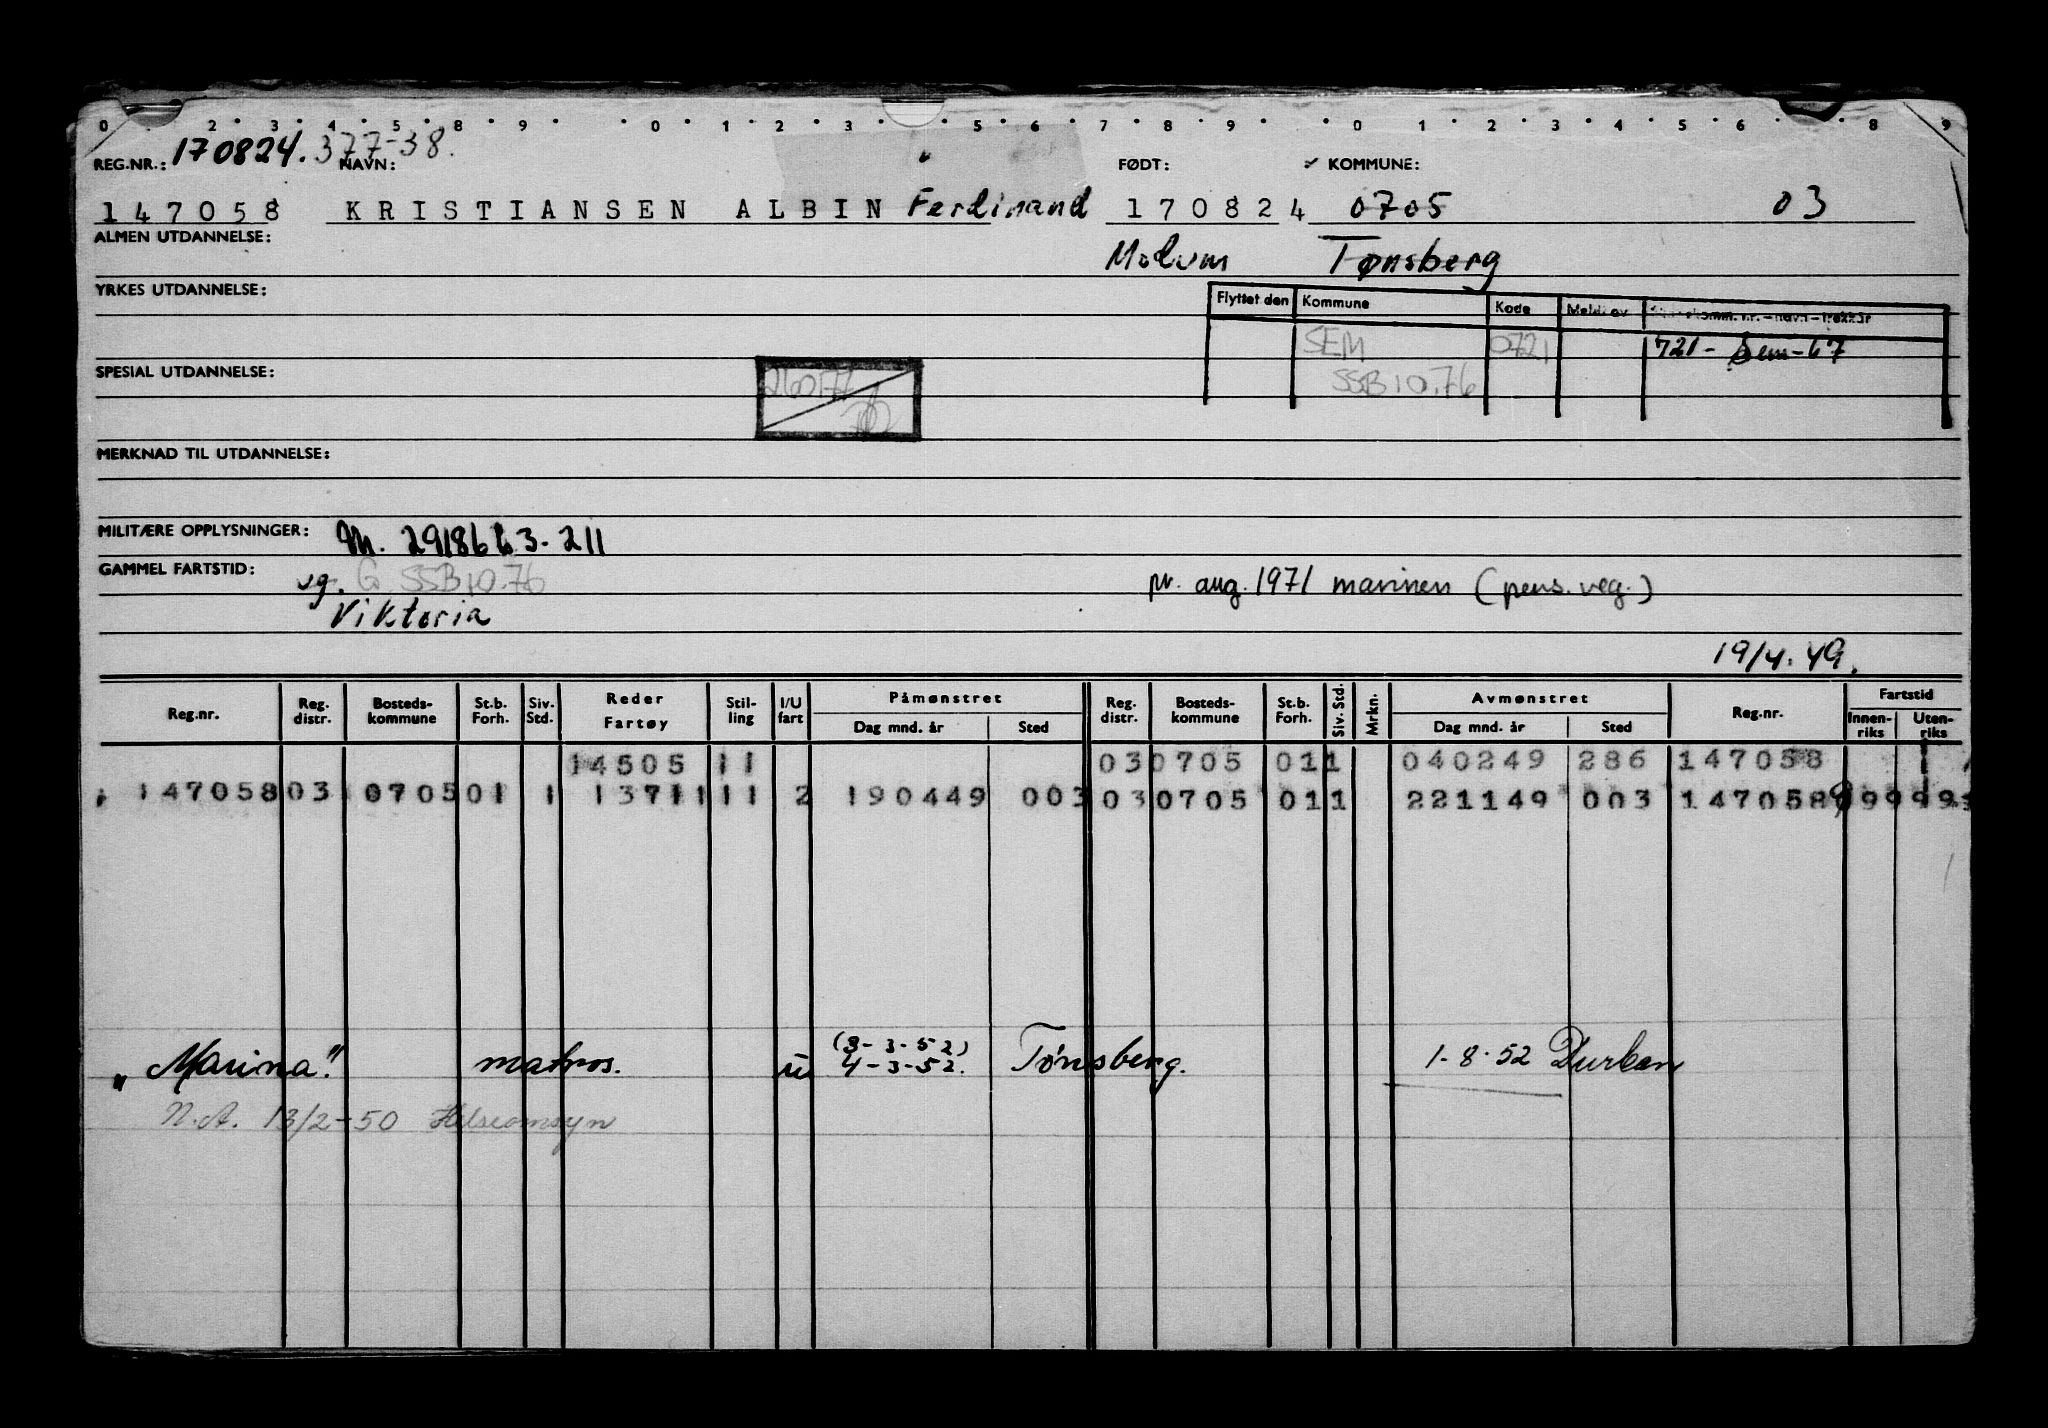 0 . 2 . 3 . 4 . 5 . 8 . 9 . . 0 . 1 . 2 . 3 . 5 . 6 . 7 . 8 . 9 . . 0 . 1 . 2 . 3 . 4 . 5 . 6 . . 8 . 9
REG.NR.: 170824. 377-38. NAVN: FØDT: KOMMUNE:
147058 KRISTIANSEN ALBIN Ferdinand 170824 0705 03
ALMEN UTDANNELSE: Molum Tønsberg
YRKES UTDANNELSE:
Flyttet den Kommune Kode
SEM 0721 721 - Sem - 67
SPESIAL UTDANNELSE: SSB 10.76
MERKNAD TIL UTDANNELSE:
MILITÆRE OPPLYSNINGER: M. 2918663-211
GAMMEL FARTSTID: vg. G SSB 10.76 pr. aug. 1971 marinen (pens. reg.)
Viktoria
19/4.49.
Reg.nr. Reg. distr. Bosteds- kommune St.b. Forh. Siv. Std. Reder Fartøy Stil- ling I/U fart Påmønstret Dag mnd. år Sted Reg. distr. Bosteds- kommune St.b. Forh. Siv. Std. Mrkn. Avmønstret Dag mnd. år Sted Reg.nr. Fartstid Innen- riks Uten- riks
14505 11 03 0705 01 1 040249 286 147058 1
147058 03 0705 01 1 13711 11 2 190449 003 03 0705 01 1 221149 003 147058 999999
"Marina" matros. u (3-3-52) 4-3-52. Tønsberg. 1-8-52 Durban
N.A. 13/2-50 Helseomsyn